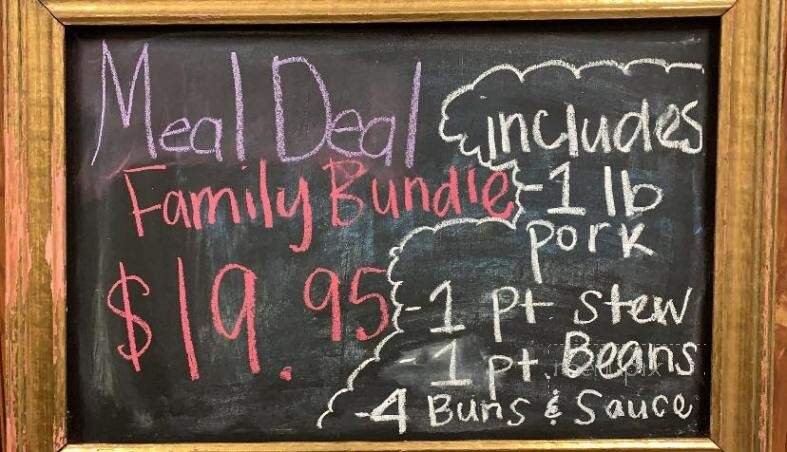 Meal Deal
Family Bundle
$19.95
includes
-1 lb
pork
-1 pt stew
-1 pt. Beans
-4 Buns & Sauce